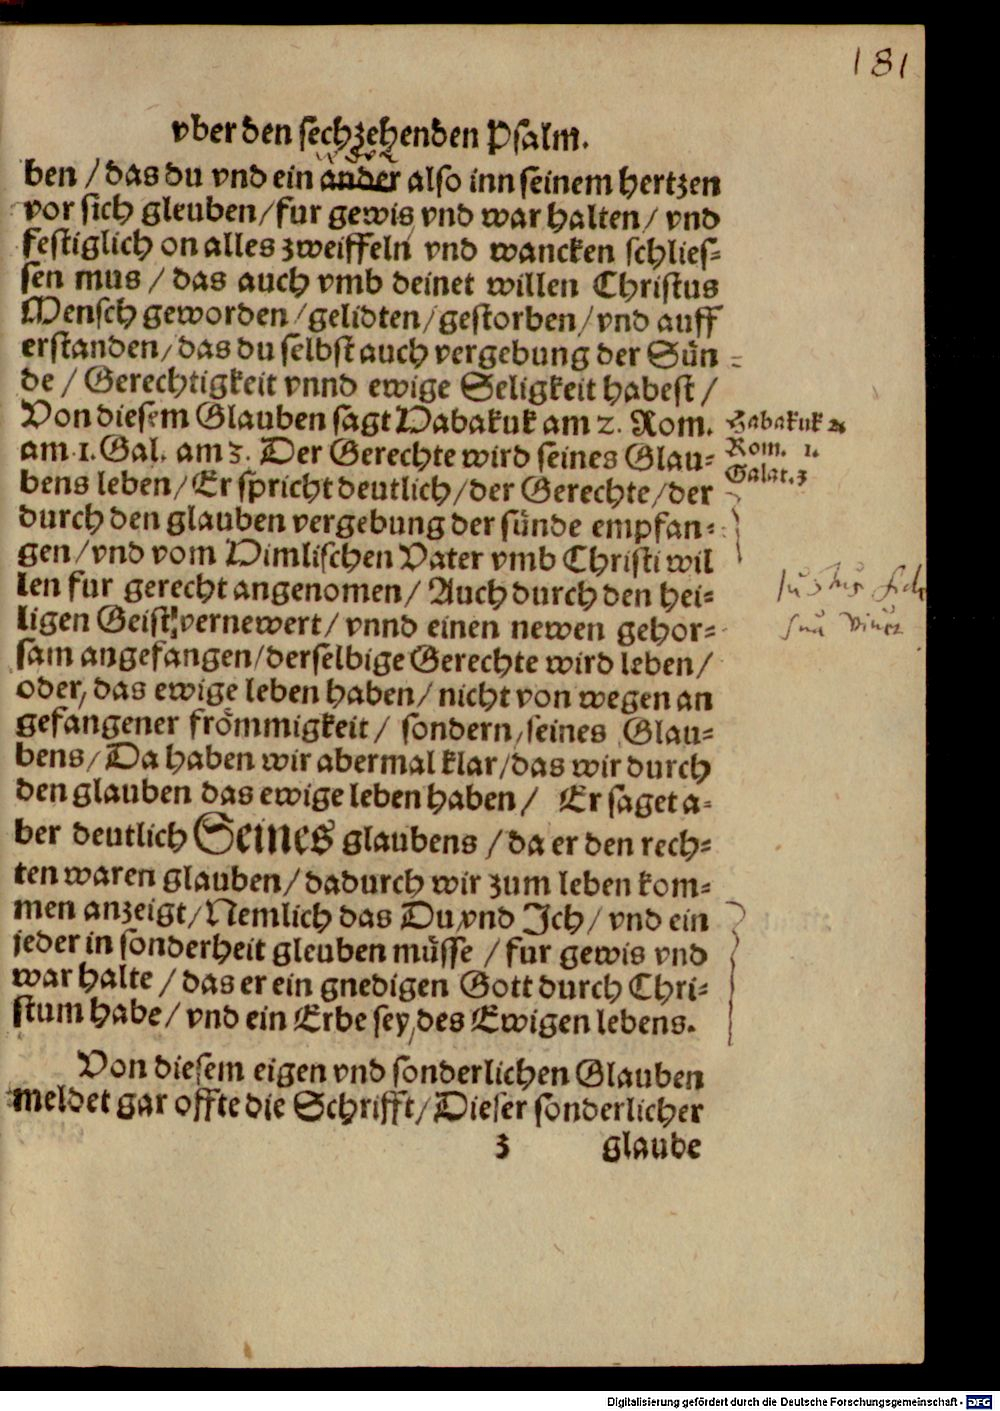 181
vber den sechzehenden Psalm.
ben / das du vnd ein ander also inn seinem hertzen
vor sich gleuben / fur gewis vnd war halten / vnd
festiglich on alles zweiffeln vnd wancken schlies-
sen mus / das auch vmb deinet willen Christus
Mensch geworden / gelidten / gestorben / vnd auff
erstanden / das du selbst auch vergebung der Sün
de / Gerechtigkeit vnnd ewige Seligkeit habest /
Von diesem Glauben sagt Habakuk am 2. Rom.
am 1. Gal. am 3. Der Gerechte wird seines Glau-
bens leben / Er spricht deutlich / der Gerechte / der
durch den glauben vergebung der sünde empfan-
gen / vnd vom Himlischen Vater vmb Christi wil
len fur gerecht angenomen / Auch durch den hei-
ligen Geist vernewert / vnnd einen newen gehor-
sam angefangen / derselbige Gerechte wird leben /
oder, das ewige leben haben / nicht von wegen an
gefangener frömmigkeit / sondern, seines Glau-
bens / Da haben wir abermal klar / das wir durch
den glauben das ewige leben haben / Er saget a-
ber deutlich Seines glaubens / da er den rech-
ten waren glauben / dadurch wir zum leben kom-
men anzeigt / Nemlich das Du, vnd Ich / vnd ein
jeder in sonderheit gleuben müsse / fur gewis vnd
war halte / das er ein gnedigen Gott durch Chri-
stum habe / vnd ein Erbe sey, des Ewigen lebens.
Von diesem eigen vnd sonderlichen Glauben
meldet gar offte die Schrifft / Dieser sonderlicher
3 glaube
Habakuk 2.
Rom. 1.
Galat. 3
Justus fide
sua viuet
Digitalisierung gefördert durch die Deutsche Forschungsgemeinschaft - DFG